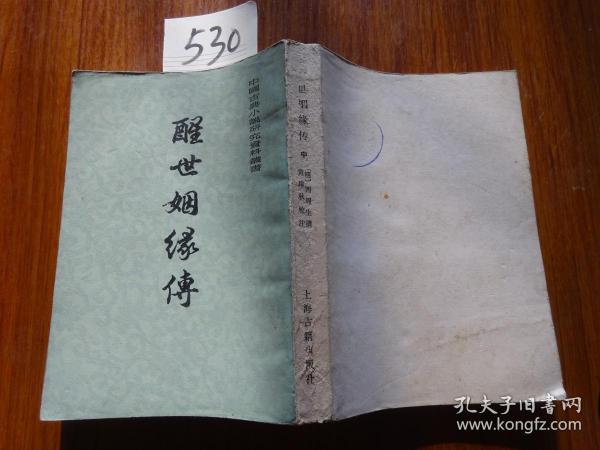 530
中國古典小說研究資料叢書
醒世姻緣傳
世姻緣传 中
[明]西周生撰
黄肅秋校注
上海古籍出版社
孔夫子旧书网
www.kongfz.com